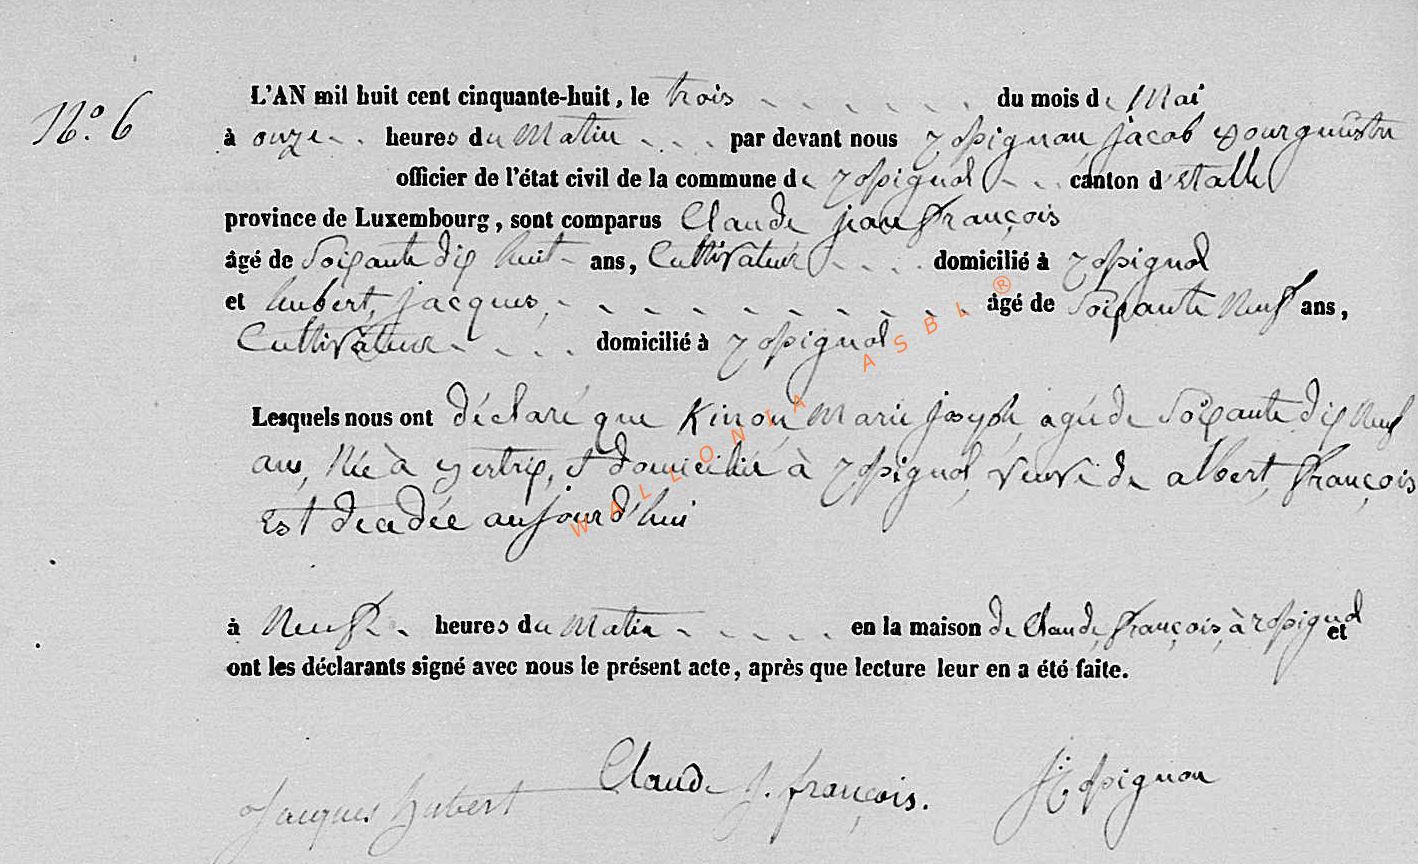 N° 6
L'AN mil huit cent cinquante-huit, le trois du mois de Mai
à onze heures du Matin par devant nous Rossignon Jacob Bourgmestre
officier de l'état civil de la commune de Rossignol canton d'Etalle
province de Luxembourg, sont comparus Claude jean françois
âgé de Soixante dix huit ans, Cultivateur domicilié à Rossignol
et hubert, jacques, âgé de Soixante Neuf ans,
Cultivateur domicilié à Rossignol
Lesquels nous ont déclaré que Kinon, Marie joseph, agée de Soixante dix Neuf
ans, Née à Bertrix, et domiciliée à Rossignol, veuve de albert, françois
Est decedée aujourd'hui
à Neuf heures du Matin en la maison de Claude, françois, à Rossignol et
ont les déclarants signé avec nous le présent acte, après que lecture leur en a été faite.
Jacques hubert Claude J. françois. J Rossignon
WALLONIA ASBL ®